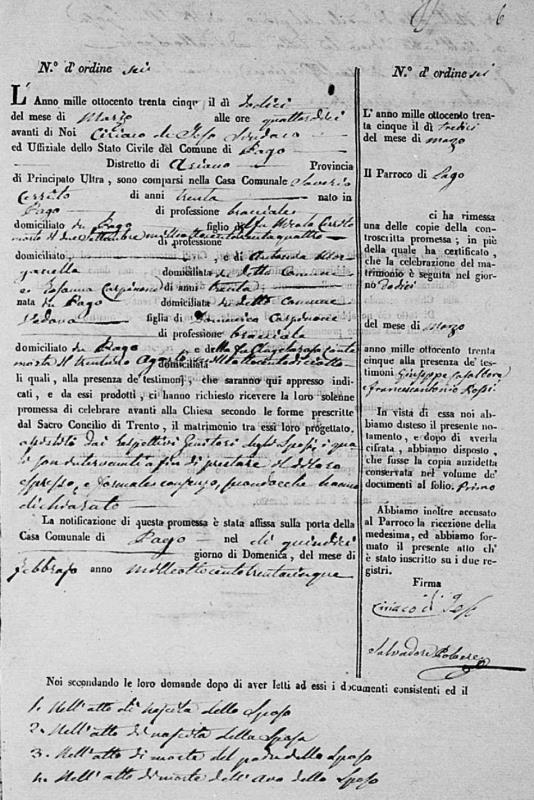 6
N.° d'ordine sei
L'Anno mille ottocento trenta cinque il dì dodici
del mese di Marzo alle ore quattordici
avanti di Noi Ciriaco de Jeso Sindaco
ed Uffiziale dello Stato Civile del Comune di Pago
Distretto di Ariano Provincia
di Principato Ultra, sono comparsi nella Casa Comunale Saverio
Cerrito di anni trenta nato in
Pago di professione bracciale
domiciliato in Pago figlio del fu Nicola Cerrito
morto il due Settembre mille ottocento trenta quattro
di professione
domiciliato e di Antonia
domiciliata in detto Comune
e Rosanna Carpinone di anni trenta
nata in Pago domiciliata in detto Comune
Vedova figlia di Domenico Carpinone
di professione bracciale
domiciliato in Pago e della fu
morta il trentuno Agosto domiciliata mille ottocento diciotto
li quali, alla presenza de' testimonj, che saranno qui appresso indi-
cati, e da essi prodotti, ci hanno richiesto ricevere la loro solenne
promessa di celebrare avanti alla Chiesa secondo le forme prescritte
dal Sacro Concilio di Trento, il matrimonio tra essi loro progettato.
assistiti dai rispettivi Genitori degli Sposi, i qua
li son intervenuti a fin di prestare il di loro
espresso, e formale consenso, secondo che hanno
dichiarato
La notificazione di questa promessa è stata affissa sulla porta della
Casa Comunale di Pago nel dì quindici
giorno di Domenica, del mese di
febbrajo anno mille ottocento trentacinque
N.° d'ordine sei
L'anno mille ottocento tren-
ta cinque il dì tredici
del mese di marzo
Il Parroco di Pago
ci ha rimessa
una delle copie della con-
troscritta promessa; in piè
della quale ha certificato,
che la celebrazione del ma-
trimonio è seguita nel gior-
no dodici
del mese di marzo
anno mille ottocento trenta
cinque alla presenza de' te-
stimoni Giuseppe
Francescantonio Rossi
In vista di essa noi ab-
biamo disteso il presente no-
tamento, e dopo di averla
cifrata, abbiamo disposto,
che fusse la copia anzidetta
conservata nel volume de'
documenti al folio. Primo
Abbiamo inoltre accusato
al Parroco la ricezione della
medesima, ed abbiamo for-
mato il presente atto ch'
è stato inscritto su i due re-
gistri.
Firma
Ciriaco de Jeso
Salvadore
Noi secondando le loro domande dopo di aver letti ad essi i documenti consistenti ed il
1. Nell'atto di nascita dello Sposo
2. Nell'atto di nascita della Sposa
3. Nell'atto di morte del padre dello Sposo
4. Nell'atto di morte dell'Avo dello Sposo